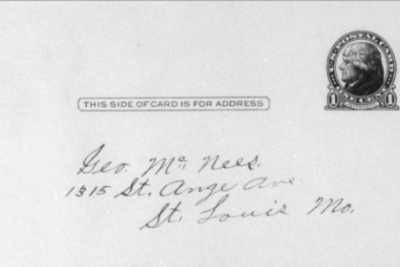 U.S. POSTAL CARD
1 CENT 1
THIS SIDE OF CARD IS FOR ADDRESS
Geo. Mc Nees.
1315 St. Ange Ave
St. Louis Mo.